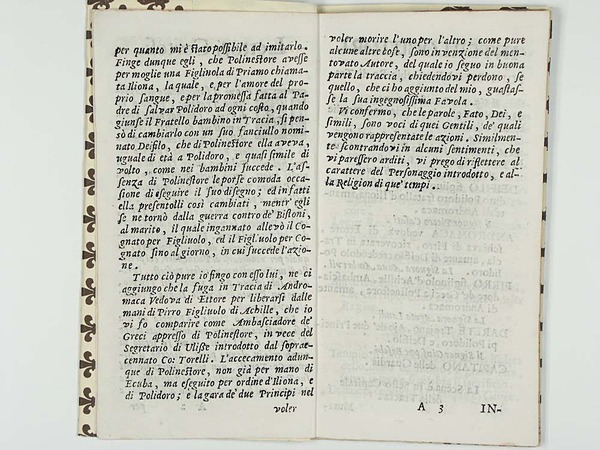 per quanto mi è stato possibile ad imitarlo.
Finge dunque egli, che Polinestore avesse
per moglie una Figliuola di Priamo chiama-
ta Iliona, la quale, e per l'amore del pro-
prio sangue, e per la promessa fatta al Pa-
dre di salvar Polidoro ad ogni costo, quando
giunse il Fratello bambino in Tracia, si pen-
sò di cambiarlo con un suo fanciullo nomi-
nato Deifilo, che di Polinestore ella aveva,
uguale di età a Polidoro, e quasi simile di
volto, come nei bambini succede. L'as-
senza di Polinestore le porse comoda occa-
sione di eseguire il suo disegno; ed in fatti
ella presentolli così cambiati, mentr' egli
se ne tornò dalla guerra contro de' Bistoni,
al marito, il quale ingannato allevò il Co-
gnato per Figliuolo, ed il Figliuolo per Co-
gnato sino al giorno, in cui succede l'azio-
ne.
Tutto ciò pure io fingo con esso lui, ne ci
aggiungo che la fuga in Tracia di Andro-
maca Vedova di Ettore per liberarsi dalle
mani di Pirro Figliuolo di Achille, che io
vi fo comparire come Ambasciadore de'
Greci appresso di Polinestore, in vece del
Segretario di Ulisse introdotto dal soprac-
cennato Co: Torelli. L'accecamento adun-
que di Polinestore, non già per mano di
Ecuba, ma eseguito per ordine d'Iliona, e
di Polidoro; e la gara de' due Principi nel
voler
voler morire l'uno per l'altro; come pure
alcune altre cose, sono invenzione del men-
tovato Autore, del quale io seguo in buona
parte la traccia, chiedendovi perdono, se
quello, che ci ho aggiunto del mio, guastas-
se la sua ingegnosissima Favola.
Vi confermo, che le parole, Fato, Dei, e
simili, sono voci di quei Gentili, de' quali
vengono rappresentate le azioni. Similmen-
te scontrandovi in alcuni sentimenti, che
vi paressero arditi, vi prego di riflettere al
carattere del Personaggio introdotto, e al-
la Religion di que' tempi.
A 3 IN-